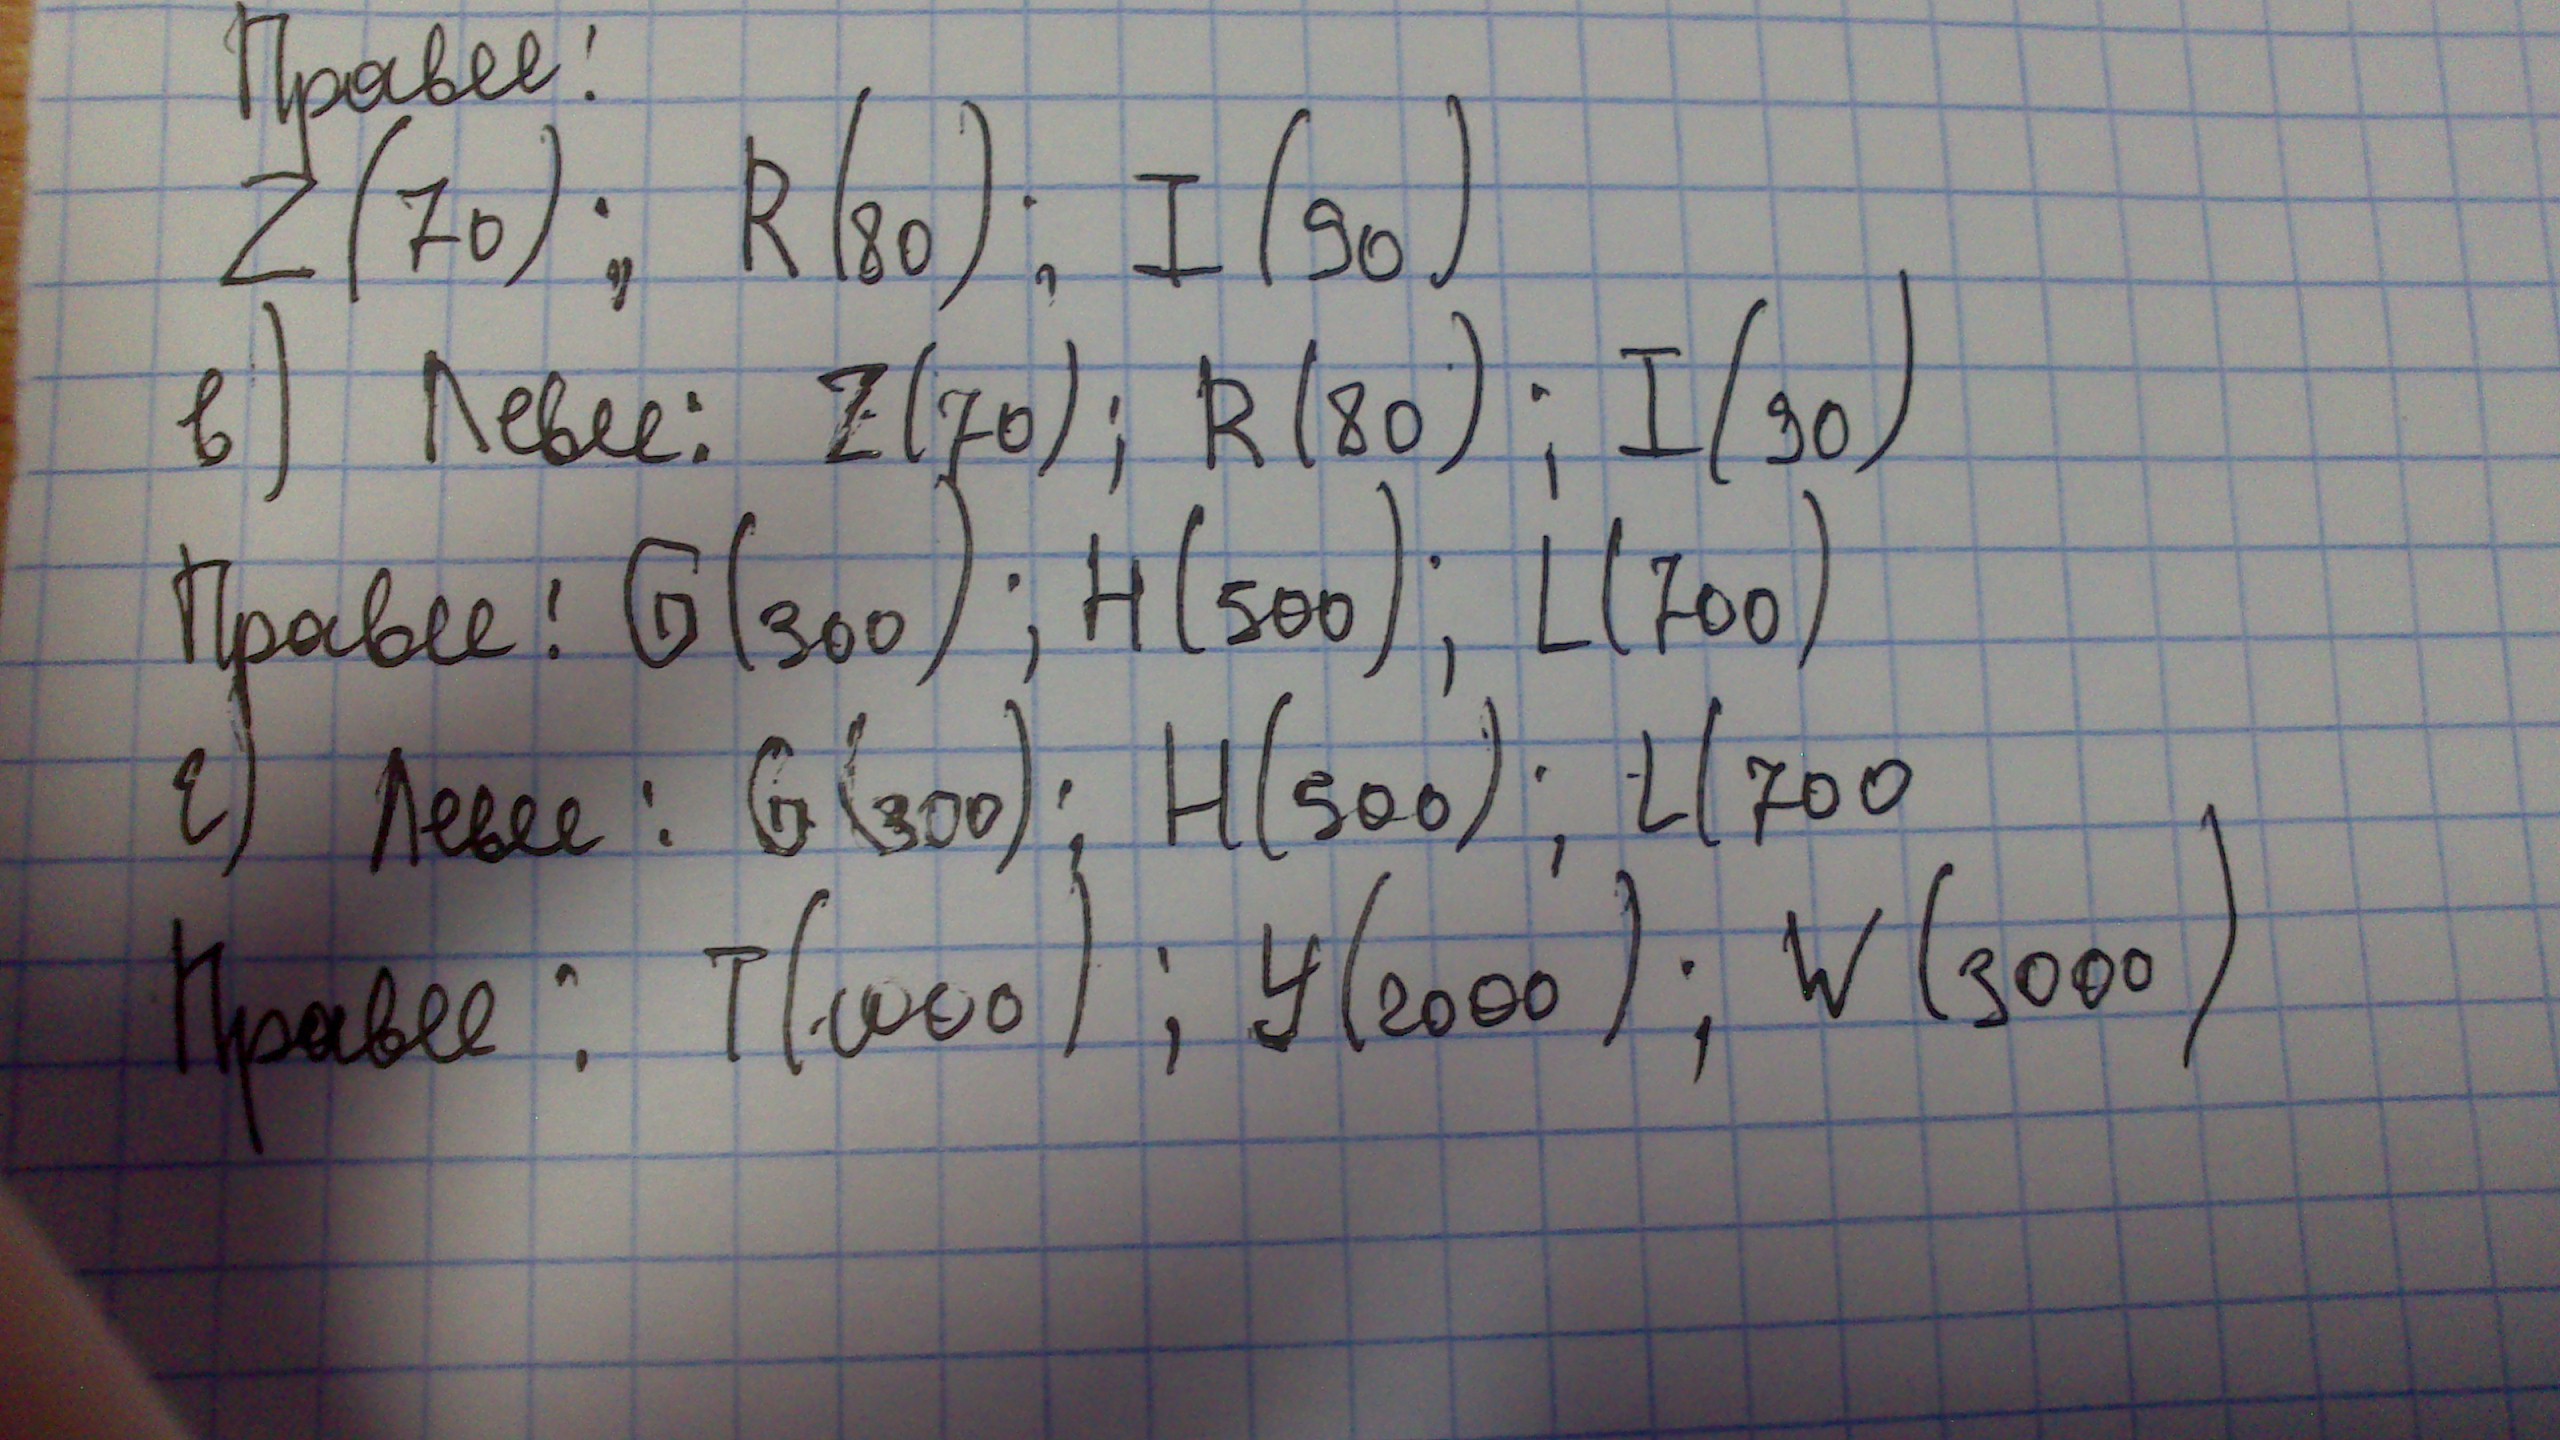 Правее:
Z(70); R(80); I(90)
в) Левее: Z(70); R(80); I(90)
Правее: G(300); H(500); L(700)
г) Левее: G(300); H(500); L(700
Правее: T(1000); У(2000); W(3000)